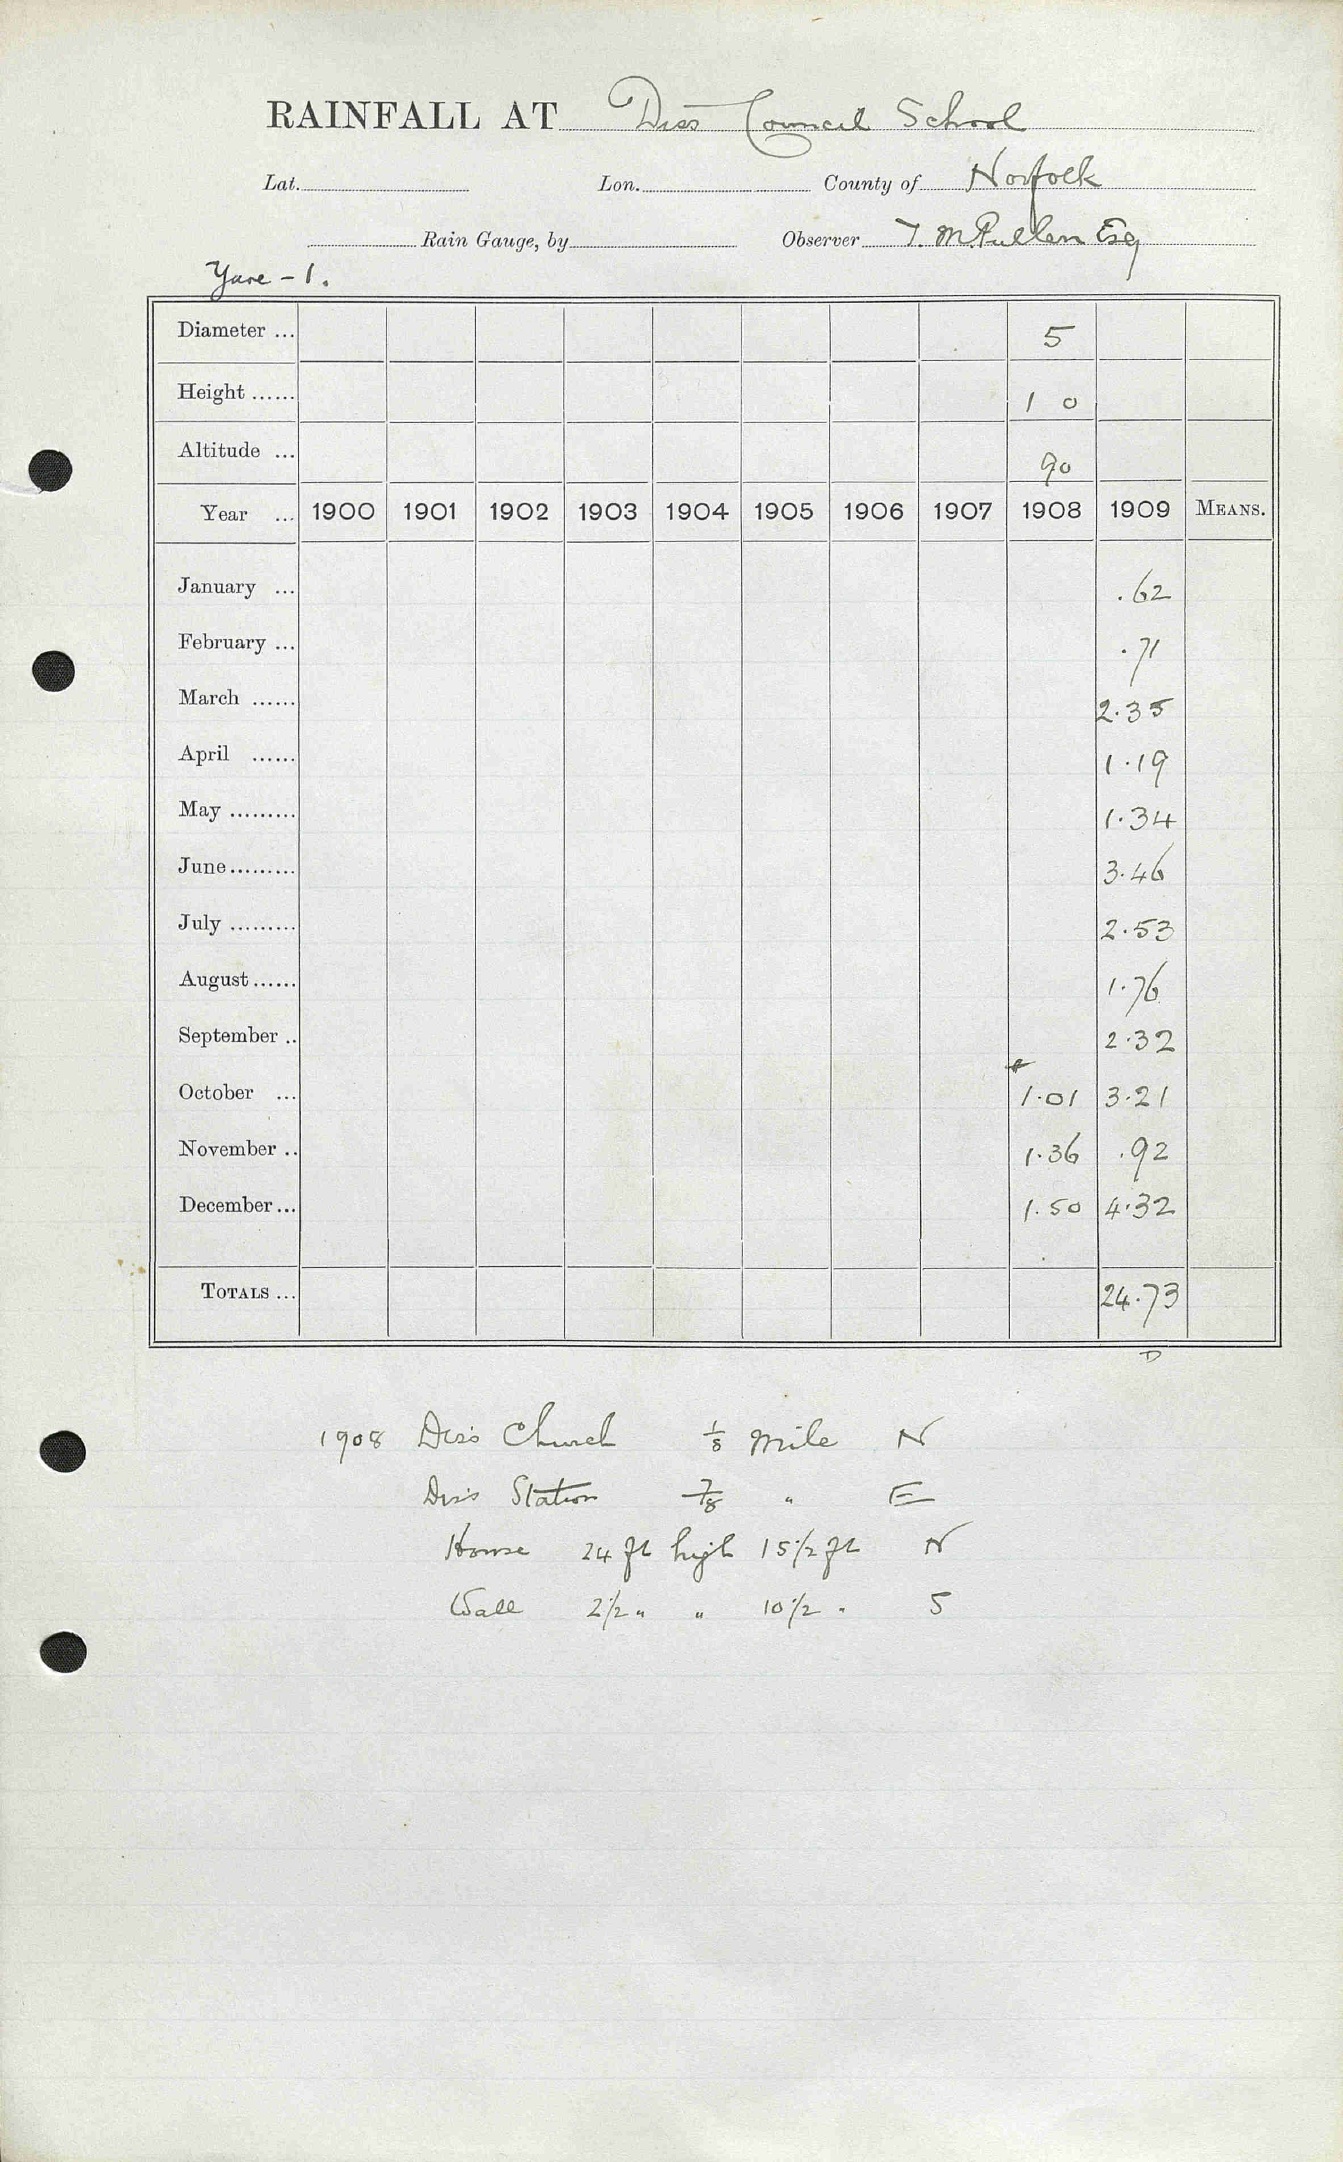 RAINFALL AT Diss Council School
Lat. Lon. County of Norfolk
Rain Gauge, by Observer T. M. Pullen Esq
Yare - 1.
Diameter ... 5
Height ...... 1 0
Altitude ... 90
Year ... 1900 1901 1902 1903 1904 1905 1906 1907 1908 1909 MEANS.
January ... .62
February ... .71
March ...... 2.35
April ...... 1.19
May ......... 1.34
June ......... 3.46
July ......... 2.53
August ...... 1.76
September .. 2.32
October ... 1.01 3.21
November .. 1.36 .92
December ... 1.50 4.32
TOTALS ... 24.73
D
1908 Diss Church 1/8 mile N
Diss Station 7/8 " E
House 24 ft high 15 1/2 ft N
Wall 2 1/2 " " 10 1/2 " S